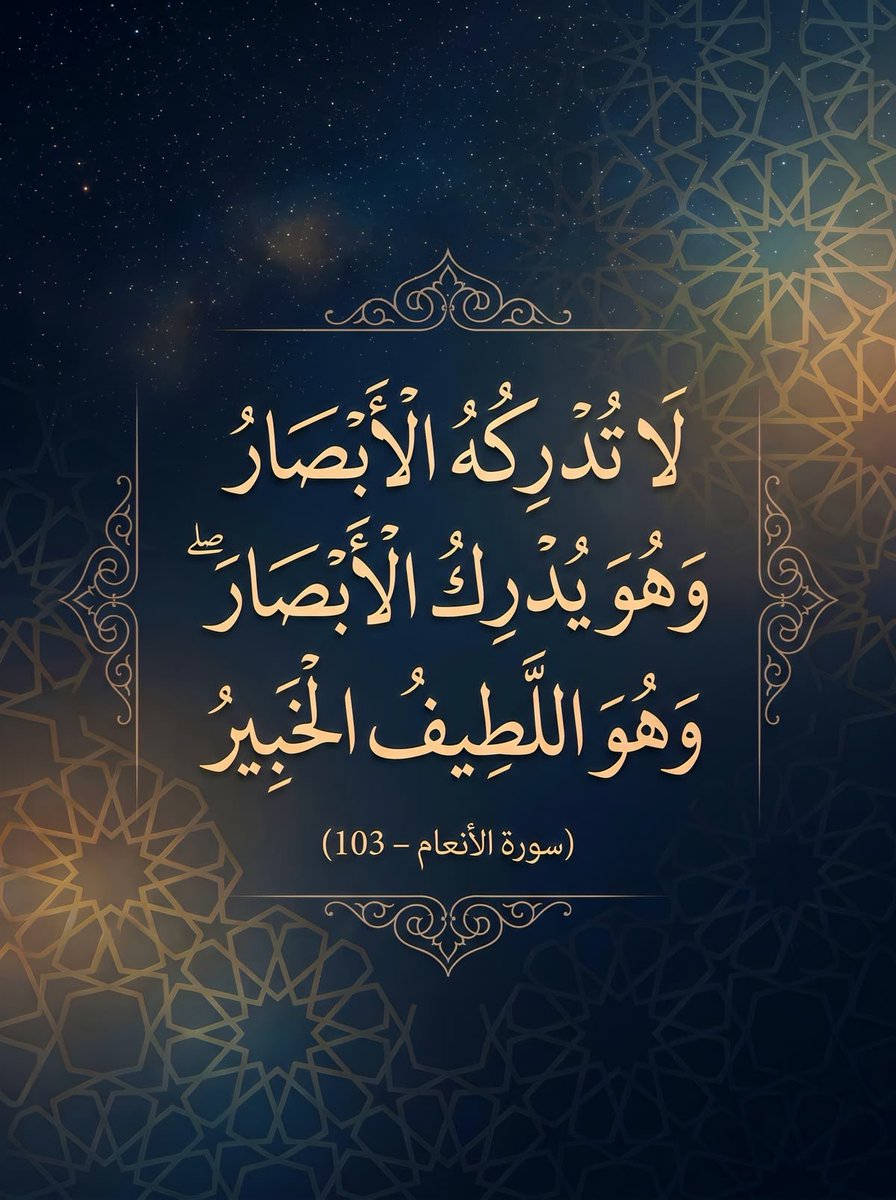 لَا تُدْرِكُهُ الْأَبْصَارُ
وَهُوَ يُدْرِكُ الْأَبْصَارَ ۖ
وَهُوَ اللَّطِيفُ الْخَبِيرُ
(سورة الأنعام – 103)